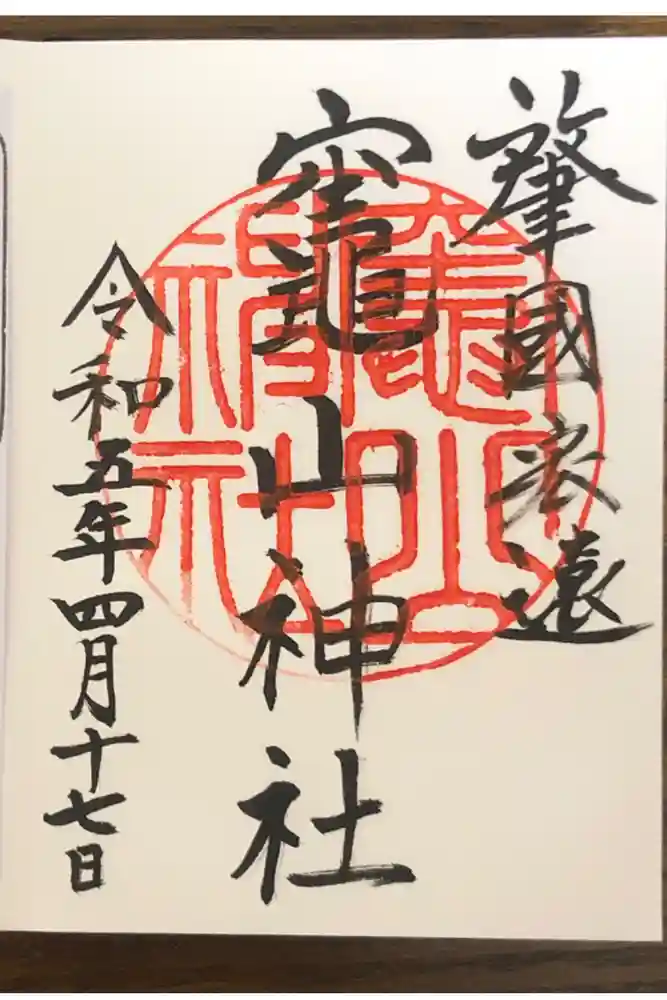 肇國宏遠
竈山神社
令和五年四月十七日
竈山神社